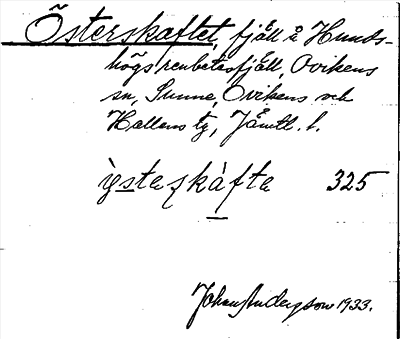 Österskaftet, fjäll å Hunds-
högs renbetesfjäll, Ovikens
sn, Sunne, Ovikens och
Hallens tg, Jämtl. l.
ỳsteʂkàfta 325
Johan Anderson 1933.